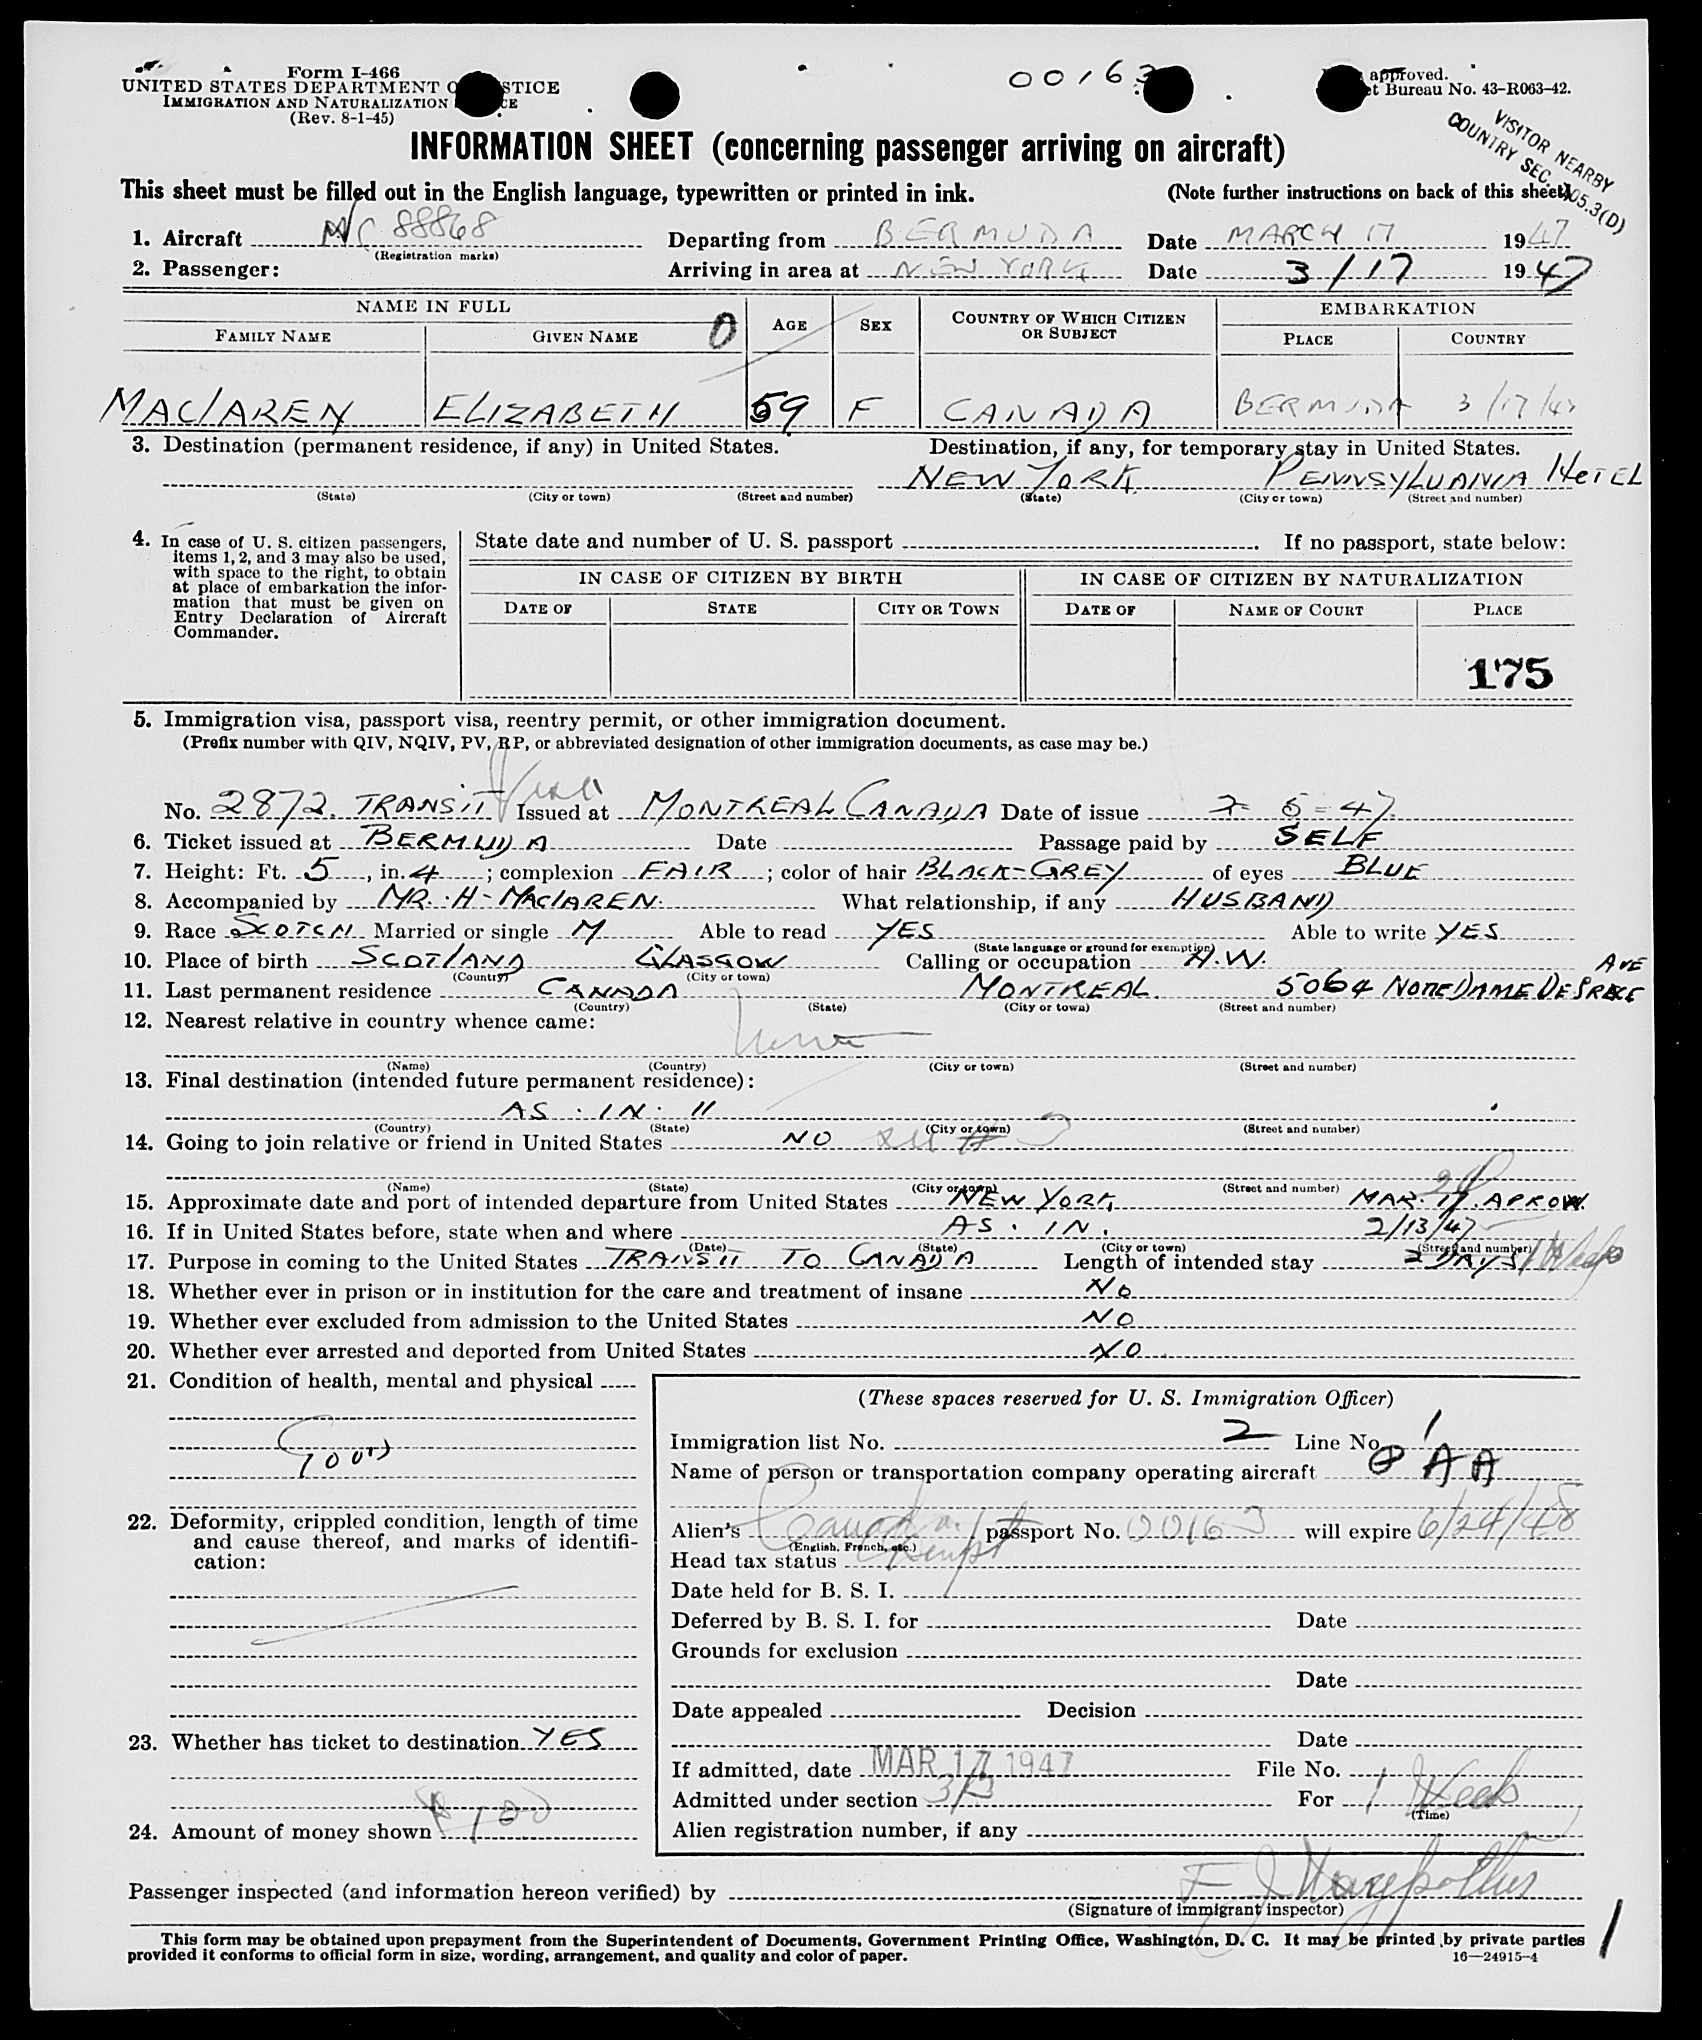 Form I-466
UNITED STATES DEPARTMENT O STICE
IMMIGRATION AND NATURALIZATION CE
(Rev. 8-1-45)
00163
approved.
t Bureau No. 43-R063-42.
VISITOR NEARBY
COUNTRY SEC. 105.3(D)
INFORMATION SHEET (concerning passenger arriving on aircraft)
This sheet must be filled out in the English language, typewritten or printed in ink. (Note further instructions on back of this sheet)
1. Aircraft NC 88868 Departing from BERMUDA Date MARCH 17 1947
(Registration marks)
2. Passenger: Arriving in area at NEW YORK Date 3/17 1947
NAME IN FULL AGE SEX COUNTRY OF WHICH CITIZEN OR SUBJECT EMBARKATION
FAMILY NAME GIVEN NAME PLACE COUNTRY
MACLAREN ELIZABETH 59 F CANADA BERMUDA 3/17/47
3. Destination (permanent residence, if any) in United States. Destination, if any, for temporary stay in United States.
NEW YORK PENNSYLVANIA HOTEL
(State) (City or town) (Street and number) (State) (City or town) (Street and number)
4. In case of U. S. citizen passengers, items 1, 2, and 3 may also be used, with space to the right, to obtain at place of embarkation the information that must be given on Entry Declaration of Aircraft Commander.
State date and number of U. S. passport . If no passport, state below:
IN CASE OF CITIZEN BY BIRTH IN CASE OF CITIZEN BY NATURALIZATION
DATE OF STATE CITY OR TOWN DATE OF NAME OF COURT PLACE
175
5. Immigration visa, passport visa, reentry permit, or other immigration document.
(Prefix number with QIV, NQIV, PV, RP, or abbreviated designation of other immigration documents, as case may be.)
No. 2872. TRANSIT Visa Issued at MONTREAL CANADA Date of issue 2-5-47.
6. Ticket issued at BERMUDA Date Passage paid by SELF
7. Height: Ft. 5, in. 4; complexion FAIR; color of hair BLACK-GREY of eyes BLUE
8. Accompanied by MR. H-MACLAREN. What relationship, if any HUSBAND
9. Race SCOTCH Married or single M Able to read YES Able to write YES
(State language or ground for exemption)
10. Place of birth SCOTLAND GLASGOW Calling or occupation H.W.
(Country) (City or town)
11. Last permanent residence CANADA MONTREAL. 5064 NOTRE DAME DE GRACE AVE
(Country) (State) (City or town) (Street and number)
12. Nearest relative in country whence came:
None
(Name) (Country) (City or town) (Street and number)
13. Final destination (intended future permanent residence):
AS. IN. 11
(Country) (State) (City or town) (Street and number)
14. Going to join relative or friend in United States NO # 3
(Name) (State) (City or town) (Street and number)
15. Approximate date and port of intended departure from United States NEW YORK, MAR. 17. APROX.
16. If in United States before, state when and where AS. IN. 2/13/47
(Date) (State) (City or town) (Street and number)
17. Purpose in coming to the United States TRANSIT TO CANADA Length of intended stay 2 DAYS/1 Week
18. Whether ever in prison or in institution for the care and treatment of insane No
19. Whether ever excluded from admission to the United States NO
20. Whether ever arrested and deported from United States NO
21. Condition of health, mental and physical
GOOD
22. Deformity, crippled condition, length of time and cause thereof, and marks of identification:
23. Whether has ticket to destination YES
24. Amount of money shown $100
(These spaces reserved for U. S. Immigration Officer)
Immigration list No. 2 Line No. 1
Name of person or transportation company operating aircraft PAA
Alien's Canada passport No. 00163 will expire 6/24/48
(English, French, etc.)
Head tax status Exempt
Date held for B. S. I.
Deferred by B. S. I. for Date
Grounds for exclusion
Date
Date appealed Decision
Date
If admitted, date MAR 17 1947 File No.
Admitted under section 3/3 For 1 Week
(Time)
Alien registration number, if any
Passenger inspected (and information hereon verified) by
(Signature of immigrant inspector)
This form may be obtained upon prepayment from the Superintendent of Documents, Government Printing Office, Washington, D. C. It may be printed by private parties
provided it conforms to official form in size, wording, arrangement, and quality and color of paper. 16—24915-4